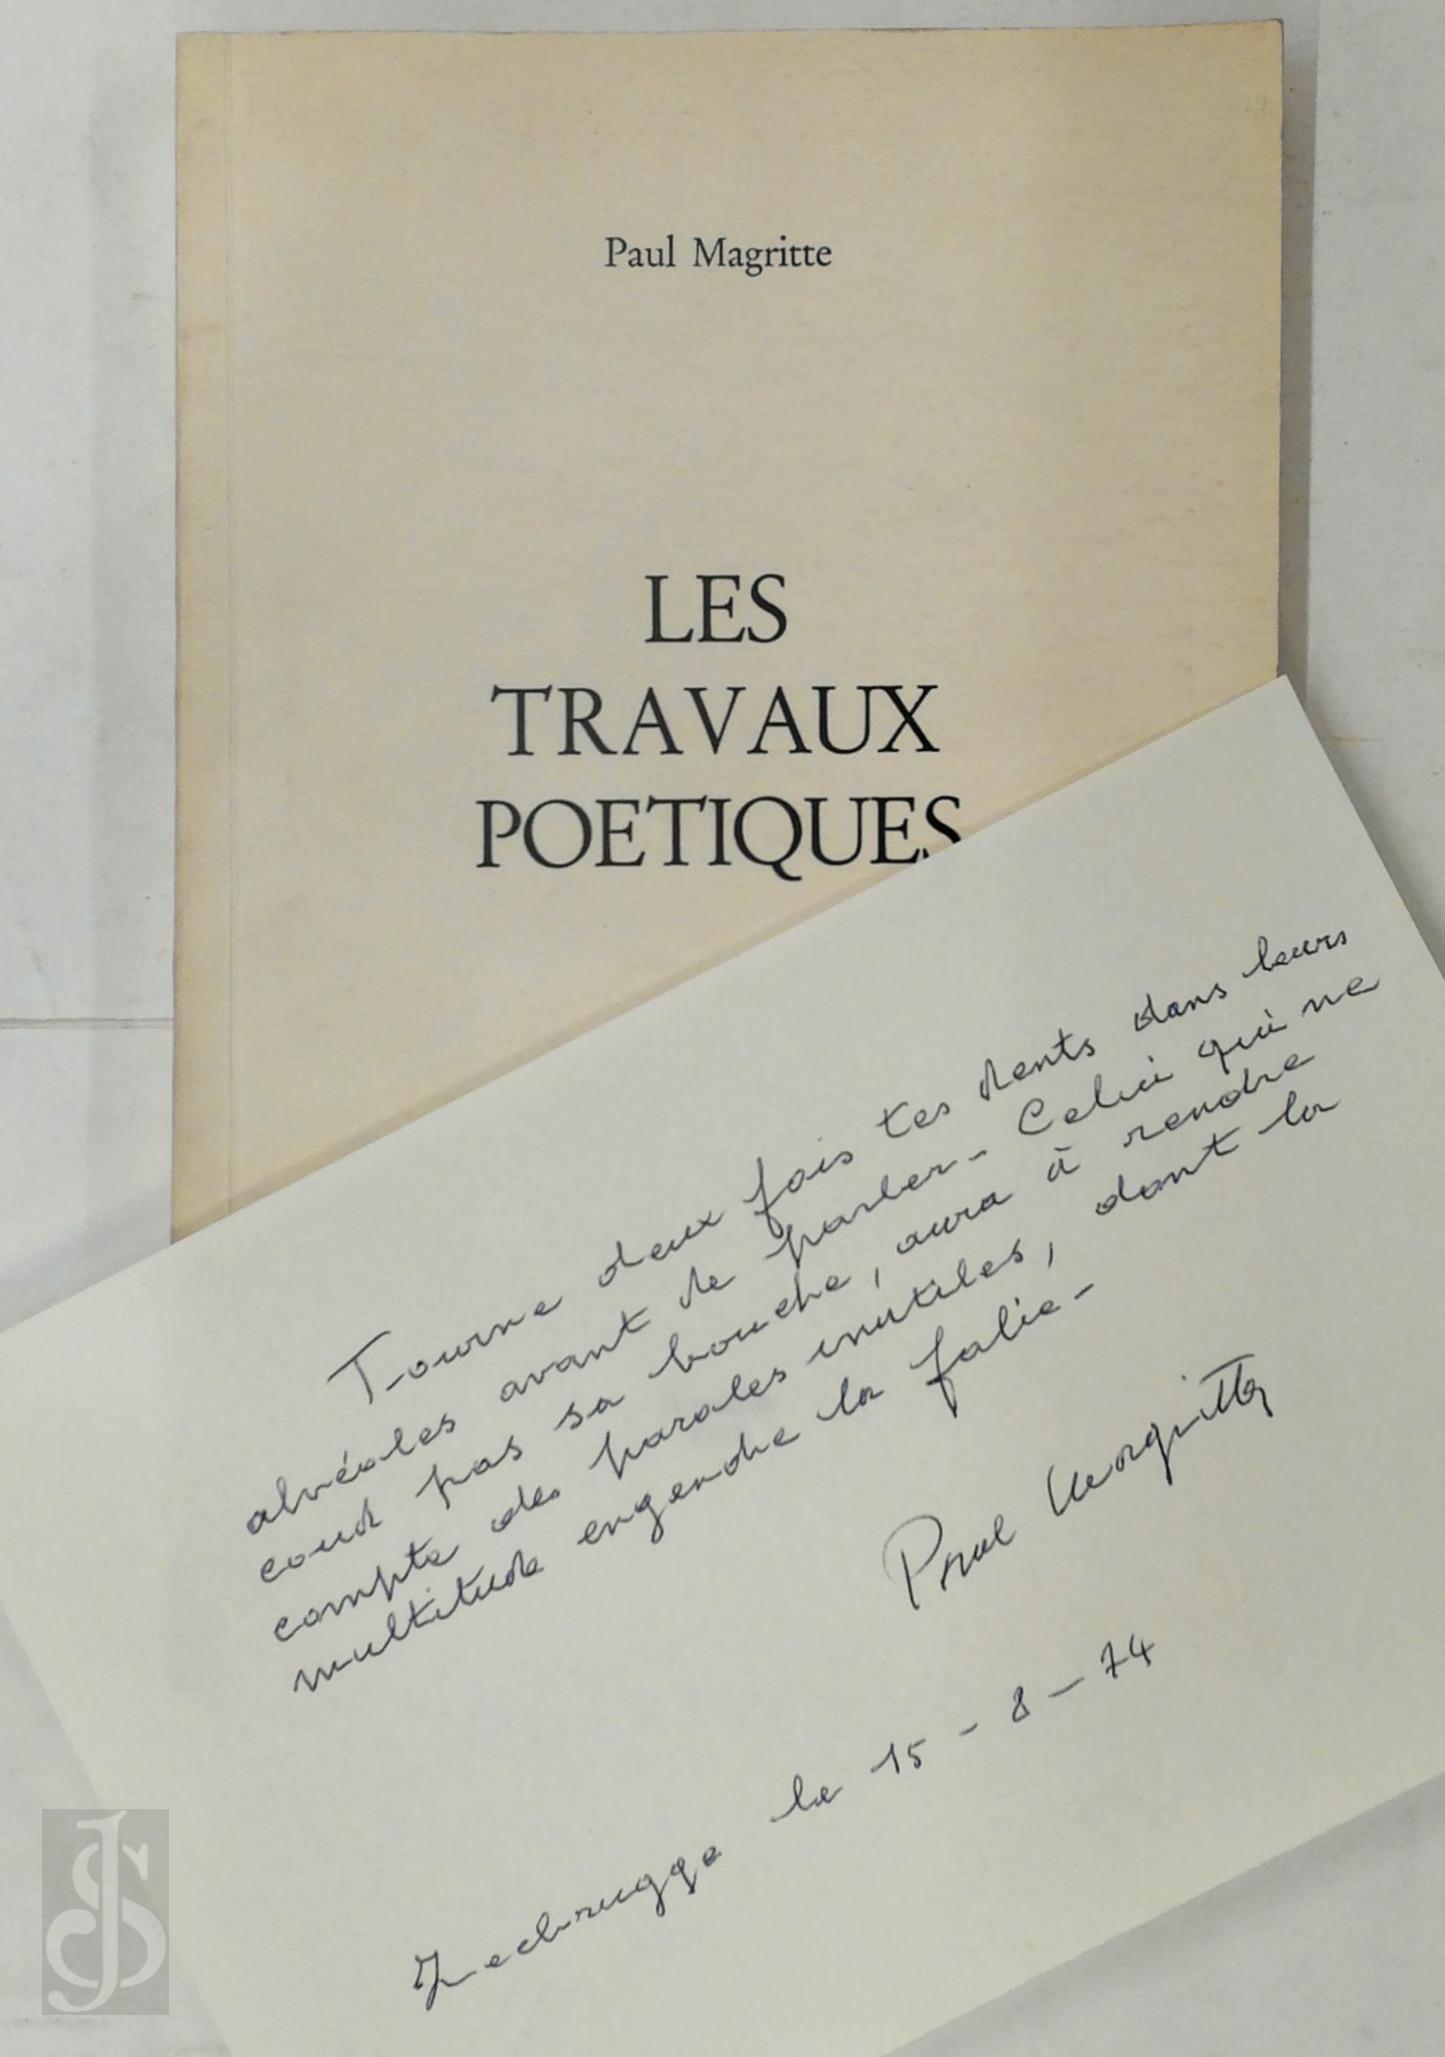 Paul Magritte
LES
TRAVAUX
POETIQUES
Tourne deux fois tes dents dans leurs
alvéoles avant de parler - Celui qui ne
coud pas sa bouche, aura à rendre
compte des paroles inutiles, dont la
multitude engendre la folie -
Paul Magritte
Zeebrugge le 15 - 8 - 74
JS